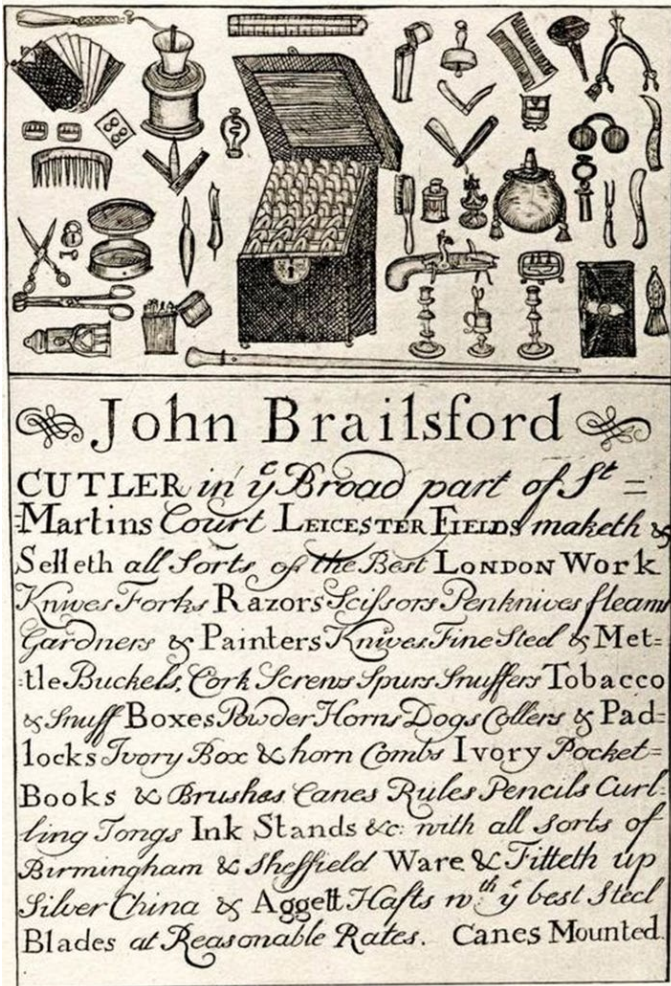 John Brailsford
CUTLER in yͤ Broad part of Sᵗ =
=Martins Court LEICESTER FIELDS maketh &
Selleth all Sorts of the Best LONDON Work
Knives Forks Razors Scissors Penknives fleams
Gardners & Painters Knives Fine Steel & Met=
=tle Buckels, Cork Screws Spurs Snuffers Tobacco
& Snuff Boxes Powder Horns Dogs Collers & Pad=
locks Ivory Box & horn Combs Ivory Pocket=
Books & Brushes Canes Rules Pencils Curl=
ling Tongs Ink Stands &c: with all Sorts of
Birmingham & Sheffield Ware & Fitteth up
Silver China & Aggett Hafts wᵗʰ yͤ best Steel
Blades at Reasonable Rates. Canes Mounted.